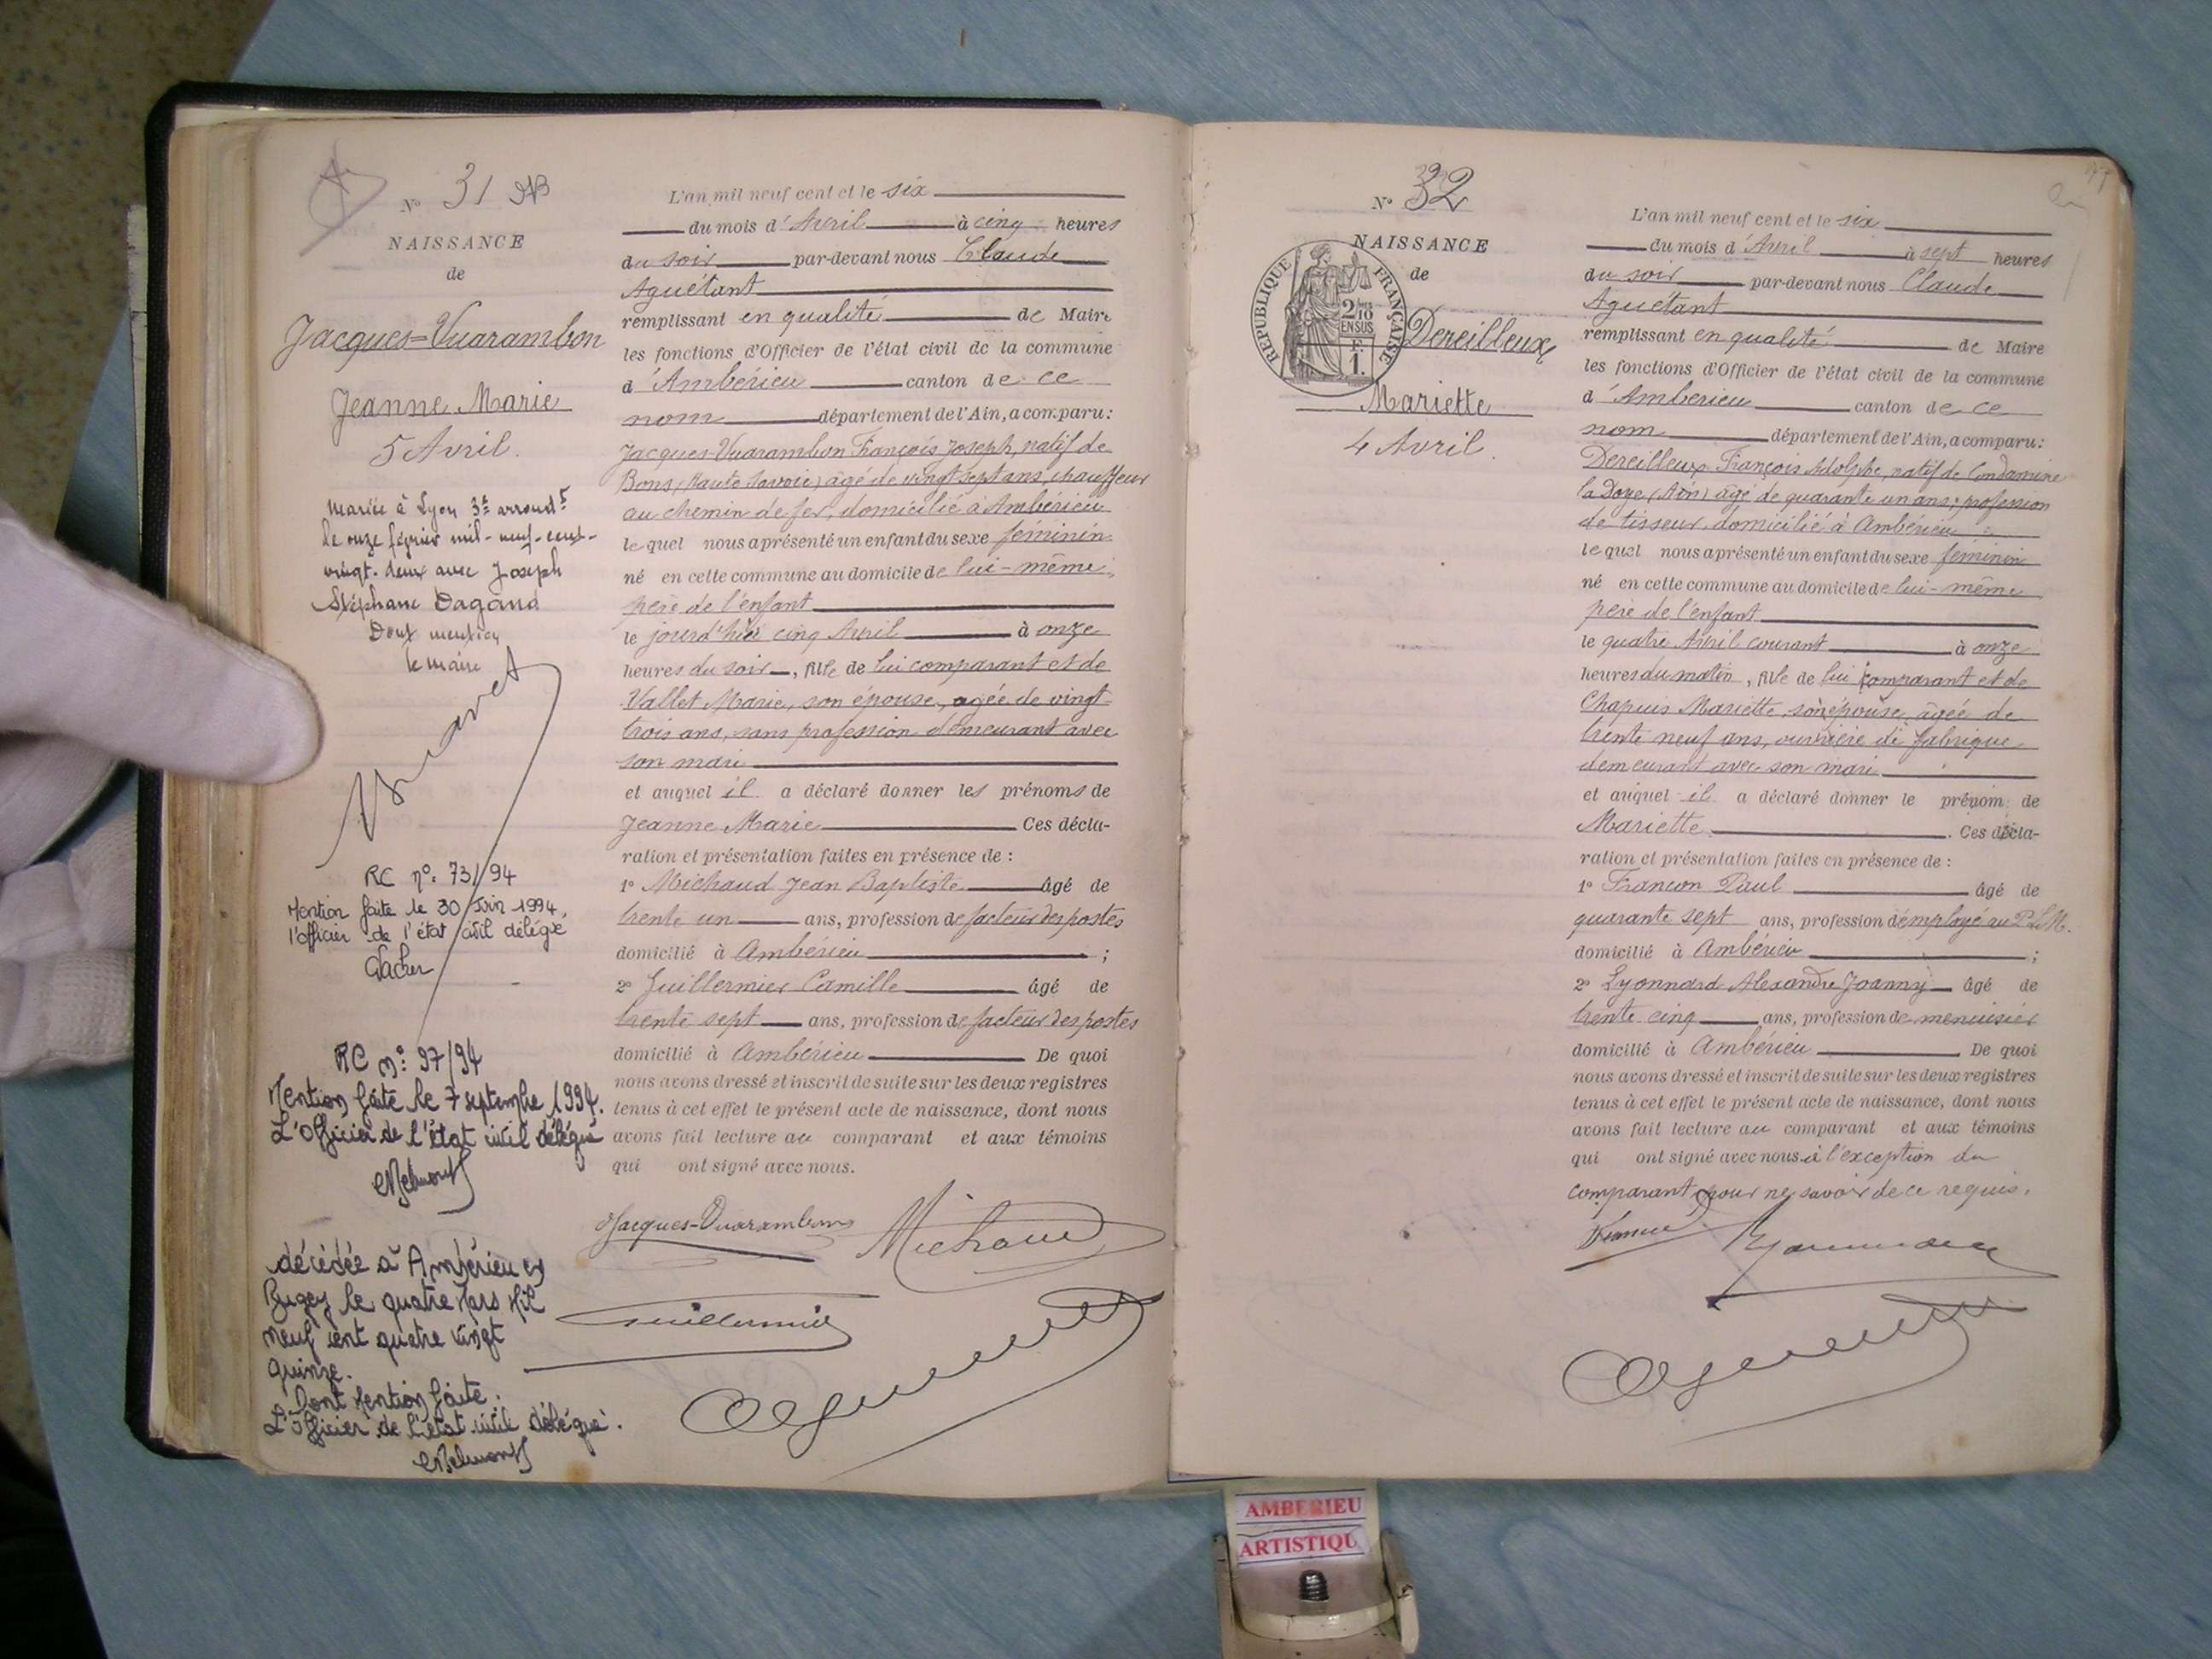 N° 31
NAISSANCE
de
Jacques=Vuarambon
Jeanne Marie
5 Avril.
Mariée à Lyon 3e arrondt
le onze février mil-neuf-cent-
vingt-deux avec Joseph
Stéphane Dagand
Dont mention
le maire
RC n°: 73/94
Mention faite le 30 Juin 1994,
l'officier de l'état civil délégué
RC n°: 97/94
Mention faite le 7 septembre 1994.
L'Officier de l'état civil délégué
décédée à Ambérieu en
Bugey le quatre Mars Mil
neuf cent quatre vingt
quinze.
Dont Mention faite.
L'Officier de l'état civil délégué.
L'an mil neuf cent et le six
du mois d'Avril à cinq heures
du soir par-devant nous Claude
Aguétant
remplissant en qualité de Maire
les fonctions d'Officier de l'état civil de la commune
d'Ambérieu canton de ce
nom département de l'Ain, a comparu:
Jacques-Vuarambon François Joseph, natif de
Bons (Haute Savoie) âgé de vingt sept ans, chauffeur
au chemin de fer, domicilié à Ambérieu
lequel nous a présenté un enfant du sexe féminin
né en cette commune au domicile de lui-même,
père de l'enfant
le jourd'hier cinq Avril à onze
heures du soir, fille de lui comparant et de
Vallet Marie, son épouse, agée de vingt
trois ans, sans profession demeurant avec
son mari
et auquel il a déclaré donner les prénoms de
Jeanne Marie Ces décla-
ration et présentation faites en présence de :
1° Michaud Jean Baptiste âgé de
trente un ans, profession de facteur des postes
domicilié à Ambérieu ;
2° Guillermier Camille âgé de
trente sept ans, profession de facteur des postes
domicilié à Ambérieu De quoi
nous avons dressé et inscrit de suite sur les deux registres
tenus à cet effet le présent acte de naissance, dont nous
avons fait lecture au comparant et aux témoins
qui ont signé avec nous.
Jacques-Vuarambon Michaud
Guillermier
N° 32
NAISSANCE
de
RÉPUBLIQUE FRANÇAISE
2/10
EN SUS
F.
1.
Dereilleux
Mariette
4 Avril.
L'an mil neuf cent et le six
du mois d'Avril à sept heures
du soir par-devant nous Claude
Aguétant
remplissant en qualité de Maire
les fonctions d'Officier de l'état civil de la commune
d'Ambérieu canton de ce
nom département de l'Ain, a comparu:
Dereilleux François Adolphe, natif de Condamine
la Doye (Ain) âgé de quarante un ans; profession
de tisseur, domicilié à Ambérieu
lequel nous a présenté un enfant du sexe féminin
né en cette commune au domicile de lui-même
père de l'enfant
le quatre Avril courant à onze
heures du matin, fille de lui comparant et de
Chapuis Mariette, son épouse, âgée de
trente neuf ans, ouvrière de fabrique
demeurant avec son mari
et auquel il a déclaré donner le prénom de
Mariette. Ces décla-
ration et présentation faites en présence de :
1° Francon Paul âgé de
quarante sept ans, profession d'employé au P.L.M.
domicilié à Ambérieu ;
2° Lyonnard Alexandre Joanny âgé de
trente cinq ans, profession de menuisier
domicilié à Ambérieu De quoi
nous avons dressé et inscrit de suite sur les deux registres
tenus à cet effet le présent acte de naissance, dont nous
avons fait lecture au comparant et aux témoins
qui ont signé avec nous à l'exception du
comparant pour ne savoir de ce requis.
AMBERIEU
ARTISTIQU